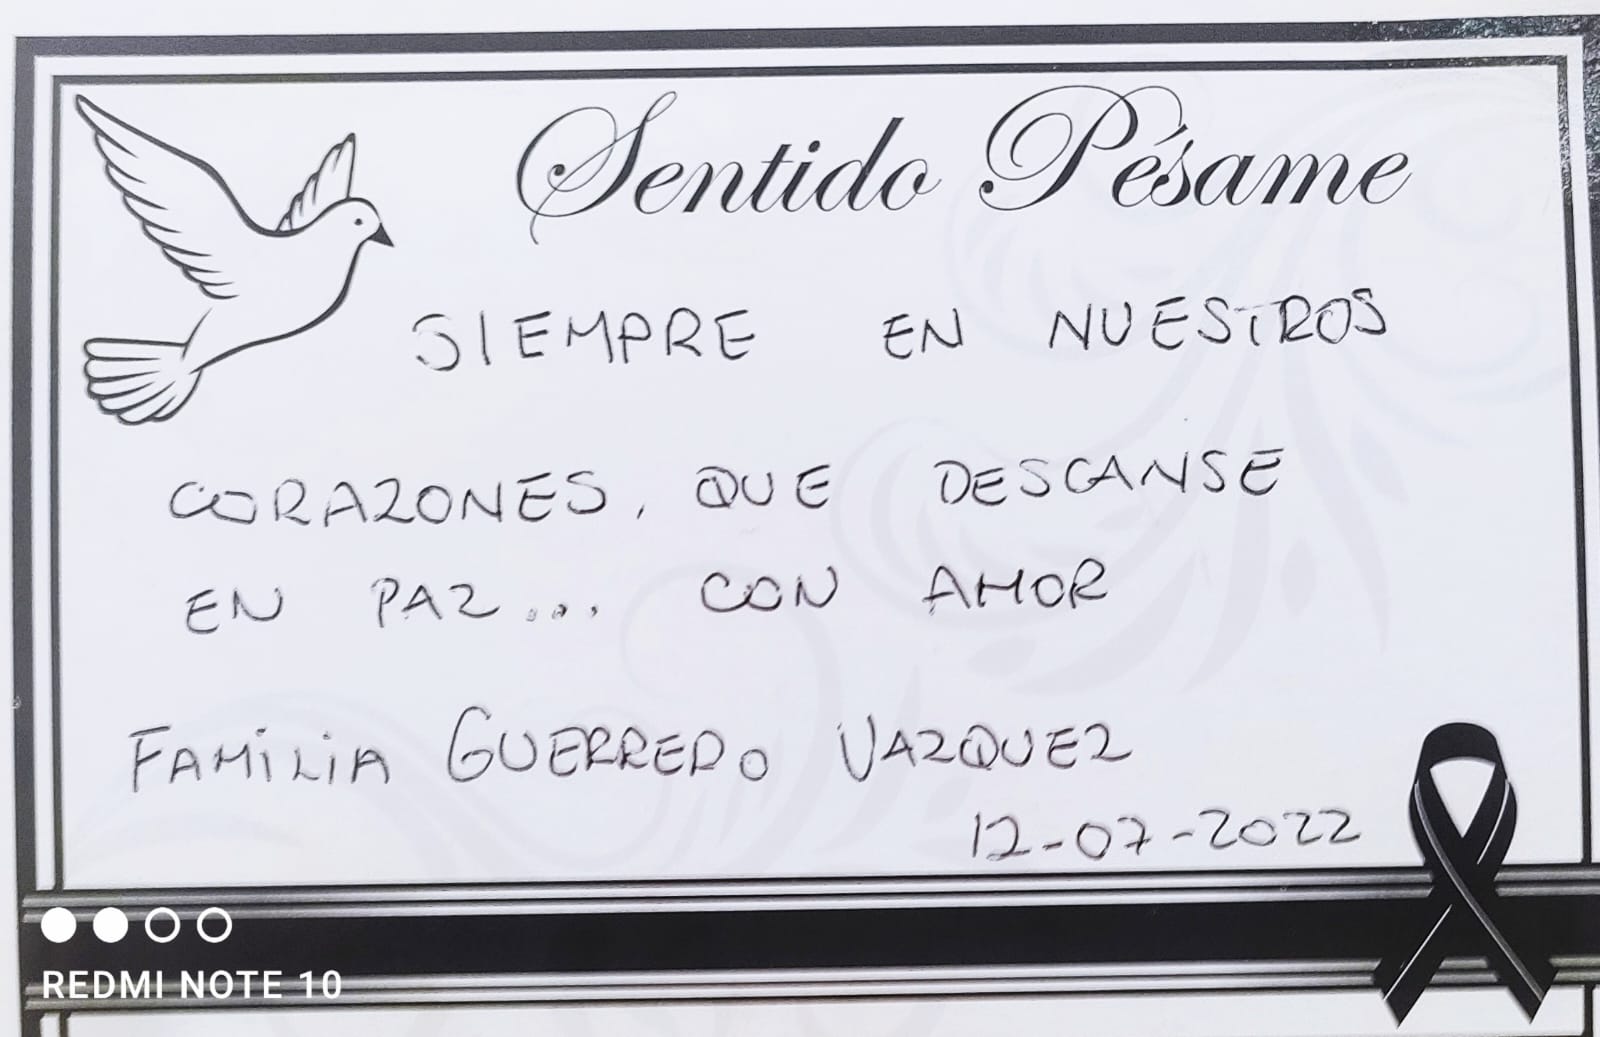 Sentido Pésame
SIEMPRE EN NUESTROS
CORAZONES, QUE DESCANSE
EN PAZ... CON AMOR
FAMILIA GUERRERO VAZQUEZ
12-07-2022
REDMI NOTE 10